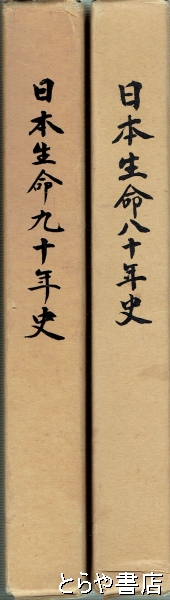 日本生命八十年史
日本生命九十年史
とらや書店